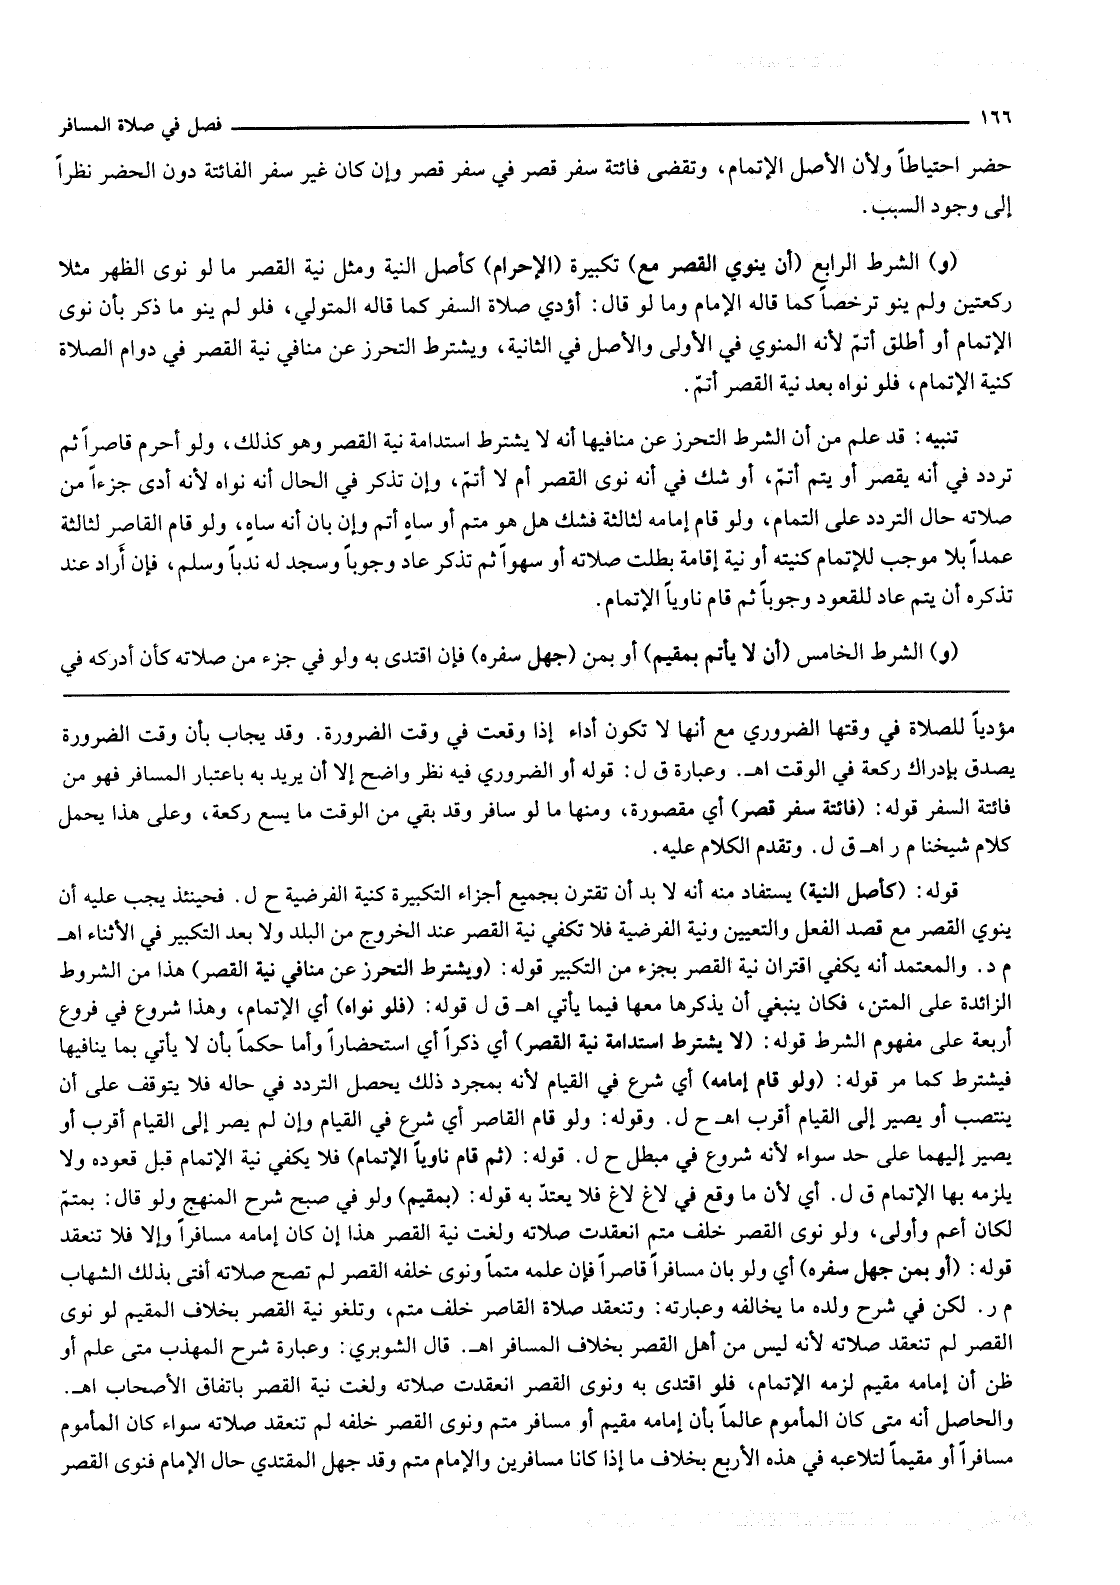 ١٦٦ فصل في صلاة المسافر
حضر احتياطاً ولأن الأصل الإتمام، وتقضى فائتة سفر قصر في سفر قصر وإن كان غير سفر الفائتة دون الحضر نظراً
إلى وجود السبب.
(و) الشرط الرابع (أن ينوي القصر مع) تكبيرة (الإحرام) كأصل النية ومثل نية القصر ما لو نوى الظهر مثلا
ركعتين ولم ينو ترخصاً كما قاله الإمام وما لو قال: أؤدي صلاة السفر كما قاله المتولي، فلو لم ينو ما ذكر بأن نوى
الإتمام أو أطلق أتمّ لأنه المنوي في الأولى والأصل في الثانية، ويشترط التحرز عن منافي نية القصر في دوام الصلاة
كنية الإتمام، فلو نواه بعد نية القصر أتمّ.
تنبيه: قد علم من أن الشرط التحرز عن منافيها أنه لا يشترط استدامة نية القصر وهو كذلك، ولو أحرم قاصراً ثم
تردد في أنه يقصر أو يتم أتمّ، أو شك في أنه نوى القصر أم لا أتمّ، وإن تذكر في الحال أنه نواه لأنه أدى جزءاً من
صلاته حال التردد على التمام، ولو قام إمامه لثالثة فشك هل هو متم أو ساهٍ أتم وإن بان أنه ساهٍ، ولو قام القاصر لثالثة
عمداً بلا موجب للإتمام كنيته أو نية إقامة بطلت صلاته أو سهواً ثم تذكر عاد وجوباً وسجد له ندباً وسلم، فإن أَراد عند
تذكره أن يتم عاد للقعود وجوباً ثم قام ناوياً الإتمام.
(و) الشرط الخامس (أن لا يأتم بمقيم) أو بمن (جهل سفره) فإن اقتدى به ولو في جزء من صلاته كأن أدركه في
مؤدياً للصلاة في وقتها الضروري مع أنها لا تكون أداء إذا وقعت في وقت الضرورة. وقد يجاب بأن وقت الضرورة
يصدق بإدراك ركعة في الوقت اهـ. وعبارة ق ل: قوله أو الضروري فيه نظر واضح إلا أن يريد به باعتبار المسافر فهو من
فائتة السفر قوله: (فائتة سفر قصر) أي مقصورة، ومنها ما لو سافر وقد بقي من الوقت ما يسع ركعة، وعلى هذا يحمل
كلام شيخنا م ر اهـ ق ل. وتقدم الكلام عليه.
قوله: (كأصل النية) يستفاد منه أنه لا بد أن تقترن بجميع أجزاء التكبيرة كنية الفرضية ح ل. فحينئذ يجب عليه أن
ينوي القصر مع قصد الفعل والتعيين ونية الفرضية فلا تكفي نية القصر عند الخروج من البلد ولا بعد التكبير في الأثناء اهـ
م د. والمعتمد أنه يكفي اقتران نية القصر بجزء من التكبير قوله: (ويشترط التحرز عن منافي نية القصر) هذا من الشروط
الزائدة على المتن، فكان ينبغي أن يذكرها معها فيما يأتي اهـ ق ل قوله: (فلو نواه) أي الإتمام، وهذا شروع في فروع
أربعة على مفهوم الشرط قوله: (لا يشترط استدامة نية القصر) أي ذكراً أي استحضاراً وأما حكماً بأن لا يأتي بما ينافيها
فيشترط كما مر قوله: (ولو قام إمامه) أي شرع في القيام لأنه بمجرد ذلك يحصل التردد في حاله فلا يتوقف على أن
ينتصب أو يصير إلى القيام أقرب اهـ ح ل. وقوله: ولو قام القاصر أي شرع في القيام وإن لم يصر إلى القيام أقرب أو
يصير إليهما على حد سواء لأنه شروع في مبطل ح ل. قوله: (ثم قام ناوياً الإتمام) فلا يكفي نية الإتمام قبل قعوده ولا
يلزمه بها الإتمام ق ل. أي لأن ما وقع في لاغ لاغ فلا يعتدّ به قوله: (بمقيم) ولو في صبح شرح المنهج ولو قال: بمتمّ
لكان أعم وأولى، ولو نوى القصر خلف متم انعقدت صلاته ولغت نية القصر هذا إن كان إمامه مسافراً وإلا فلا تنعقد
قوله: (أو بمن جهل سفره) أي ولو بان مسافراً قاصراً فإن علمه متماً ونوى خلفه القصر لم تصح صلاته أفتى بذلك الشهاب
م ر. لكن في شرح ولده ما يخالفه وعبارته: وتنعقد صلاة القاصر خلف متم، وتلغو نية القصر بخلاف المقيم لو نوى
القصر لم تنعقد صلاته لأنه ليس من أهل القصر بخلاف المسافر اهـ. قال الشوبري: وعبارة شرح المهذب متى علم أو
ظن أن إمامه مقيم لزمه الإتمام، فلو اقتدى به ونوى القصر انعقدت صلاته ولغت نية القصر باتفاق الأصحاب اهـ.
والحاصل أنه متى كان المأموم عالماً بأن إمامه مقيم أو مسافر متم ونوى القصر خلفه لم تنعقد صلاته سواء كان المأموم
مسافراً أو مقيماً لتلاعبه في هذه الأربع بخلاف ما إذا كانا مسافرين والإمام متم وقد جهل المقتدي حال الإمام فنوى القصر